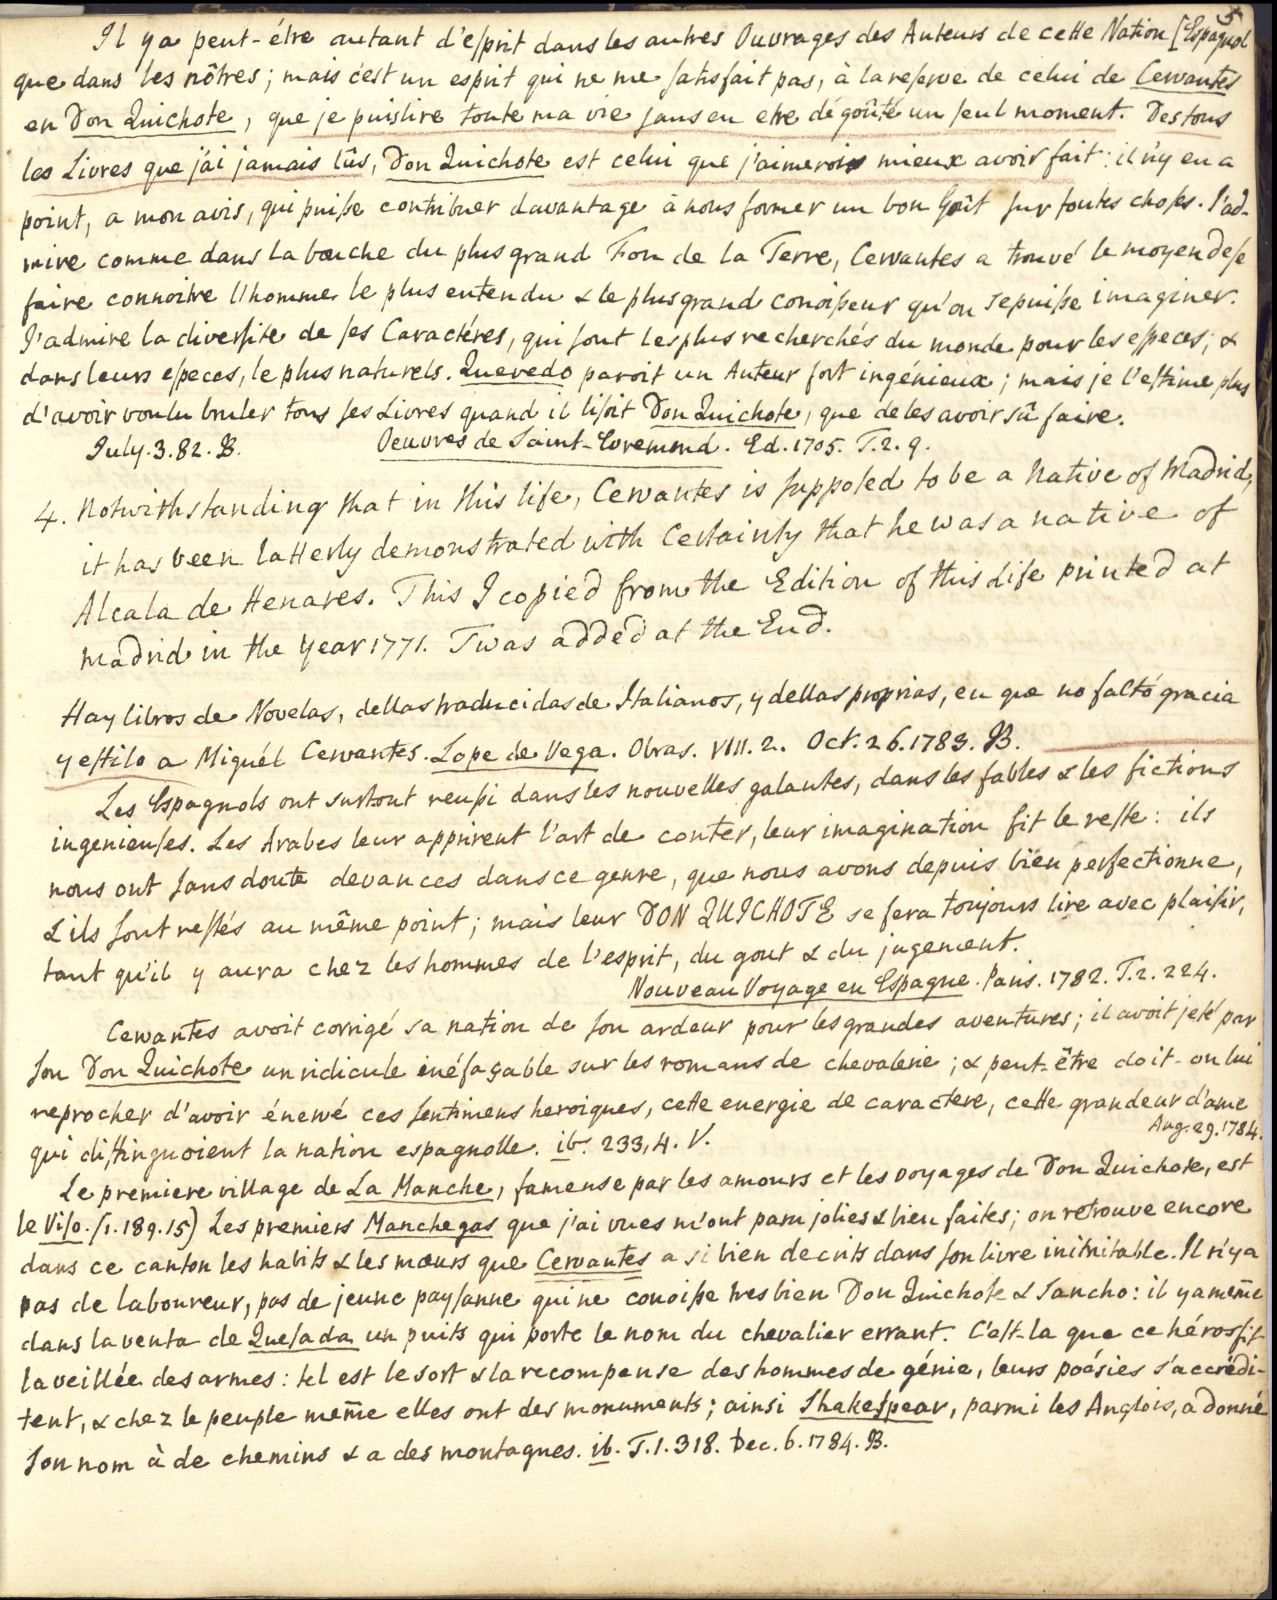 5
Il ya peut-étre autant d'esprit dans les autres Ouvrages des Auteurs de cette Nation [Espagnol
que dans les nôtres; mais c'est un esprit qui ne me satisfait pas, à la reserve de celui de Cervantes
en Don Quichote, que je puis lire toute ma vie sans en etre dégoûté un seul moment. Des tous
les Livres que j'ai jamais lûs, Don Quichote est celui que j'aimerois mieux avoir fait: il n'y en a
point, a mon avis, qui puisse contribuer davantage à nous former un bon Goût sur toutes choses. J'ad-
mire comme dans la bouche du plus grand Fou de la Terre, Cervantes a trouvé le moyen de se
faire connoitre l'homme le plus entendu & le plus grand conoisseur qu'on se puisse imaginer.
J'admire la diversite de ses Caractéres, qui sont les plus recherchés du monde pour les especes; &
dans leurs especes, le plus naturels. Quevedo paroit un Auteur fort ingénieux; mais je l'estime plus
d'avoir voulu bruler tous ses Livres quand il lisoit Don Quichote, que de les avoir sû faire.
July. 3. 82. B. Oeuvres de Saint-Evremond. Ed. 1705. T. 2. 9.
4. Notwithstanding that in this life, Cervantes is supposed to be a Native of Madrid,
it has been latterly demonstrated with Certainty that he was a native of
Alcala de Henares. This I copied from the Edition of this Life printed at
Madrid in the Year 1771. Twas added at the End.
Hay libros de Novelas, dellas traducidas de Italianos, y dellas proprias, en que no faltó gracia
y estilo a Miguél Cervantes. Lope de Vega. Obras. VIII. 2. Oct. 26. 1783. B.
Les Espagnols ont surtout reussi dans les nouvelles galantes, dans les fables & les fictions
ingenieuses. Les Arabes leur apprirent l'art de conter, leur imagination fit le reste: ils
nous ont sans doute devances dans ce genre, que nous avons depuis bien perfectionne,
& ils sont restés au même point; mais leur DON QUICHOTE se fera toujours lire avec plaisir,
tant qu'il y aura chez les hommes de l'esprit, du gout & du jugement.
Nouveau Voyage en Espagne. Paris. 1782. T. 2. 224.
Cervantes avoit corrigé sa nation de son ardeur pour les grandes aventures; il avoit jeté par
son Don Quichote un ridicule inéfaçable sur les romans de chevalerie; & peut-être doit-on lui
reprocher d'avoir énervé ces sentimens heroiques, cette energie de caractere, cette grandeur d'ame
qui distinguoient la nation espagnolle. ib. 233, 4. V. Aug. 29. 1784.
Le premiere village de La Manche, fameuse par les amours et les voyages de Don Quichote, est
le Viso. (1. 189. 15) Les premiers Manchegas que j'ai vues m'ont paru jolies & bien faites; on retrouve encore
dans ce canton les habits & les mœurs que Cervantes a si bien decrits dans son livre inimitable. Il n'ya
pas de laboureur, pas de jeune paysanne qui ne conoisse tres bien Don Quichote & Sancho: il ya meme
dans la venta de Quesada un puits qui porte le nom du chevalier errant. C'est-la que ce héros fit
la veillée des armes: tel est le sort & la recompense des hommes de génie, leurs poésies s'accrédi-
tent, & chez le peuple meme elles ont des monuments; ainsi Shakespear, parmi les Anglois, a donné
son nom à de chemins & a des montagnes. ib. T. 1. 318. Dec. 6. 1784. B.